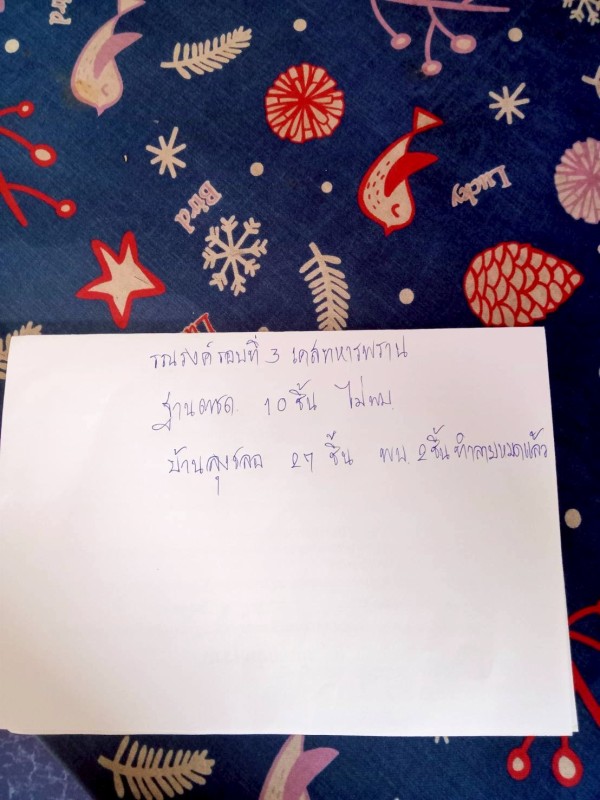 Bird
Bird
Lucky
รณรงค์รอบที่ 3 เคสทหารพราน
ฐานตชด. 10 ชิ้น ไม่พบ.
บ้านลุงชลอ 27 ชิ้น พบ. 2 ชิ้น ทำลายหมดแล้ว